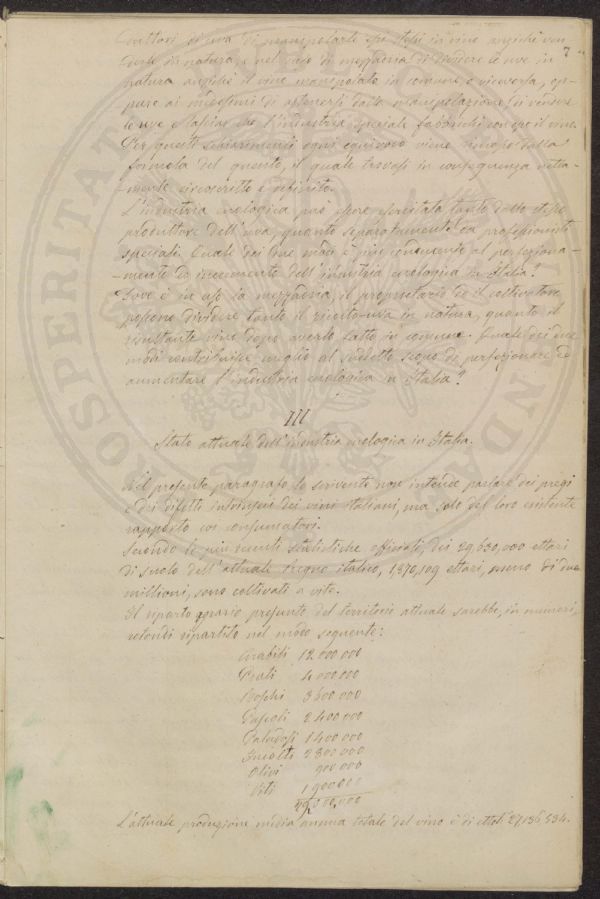 duttori di uva di manipolarle essi stessi in vino anziché ven
derle in natura, e nel caso di mezzadria di dividere le uve in
natura anziché il vine manipolato in comune e viceversa, op-
pure ai medesimi di astenersi dalla manipolazione, di vendere
le uve e lasciar che l'industria speciale fabbrichi con esse il vino.
Per questi schiarimenti ogni equivoco viene rimosso dalla
formola del quesito, il quale trovasi in conseguenza netta-
-mente circoscritto e definito.
L'industria enologica può essere esercitata tanto dallo stesso
produttore dell'uva, quanto separatamente da professionisti
speciali. Quale dei due modi è più conducente al perfeziona-
-mento ed incremento dell'industria enologica in Italia?
Dove è in uso la mezzadria, il proprietario ed il coltivatore
possono dividere tanto il ricolto-uva in natura, quanto il
risultante vino dopo averlo fatto in comune. Quale dei due
modi contribuisce meglio al suddetto scopo di perfezionare ed
aumentare l'industria enologica in Italia?
III
Stato attuale dell'industria enologica in Italia.
Nel presente paragrafo lo scrivente non intende parlare dei pregi
e dei difetti intrinseci dei vini italiani, ma solo del loro esistente
rapporto coi consumatori.
Secondo le più recenti statistiche officiali, dei 29,630,000 ettari
di suolo dell'attuale Regno italico, 1,870,109 ettari, meno di due
millioni, sono coltivati a vite.
Il riparto agrario presunto del territorio attuale sarebbe, in numeri
rotondi ripartito nel modo seguente:
Arabili 12 000 000
Prati 4 000 000
Boschi 3 600 000
Pascoli 2 400 000
Paludosi 1 400 000
Incolti 2 800 000
Olivi 900 000
Viti 1 900 000
29,000,000
L'attuale produzione media annua totale del vino è di ettol. 27,136,534.
7
PROSPERITATI